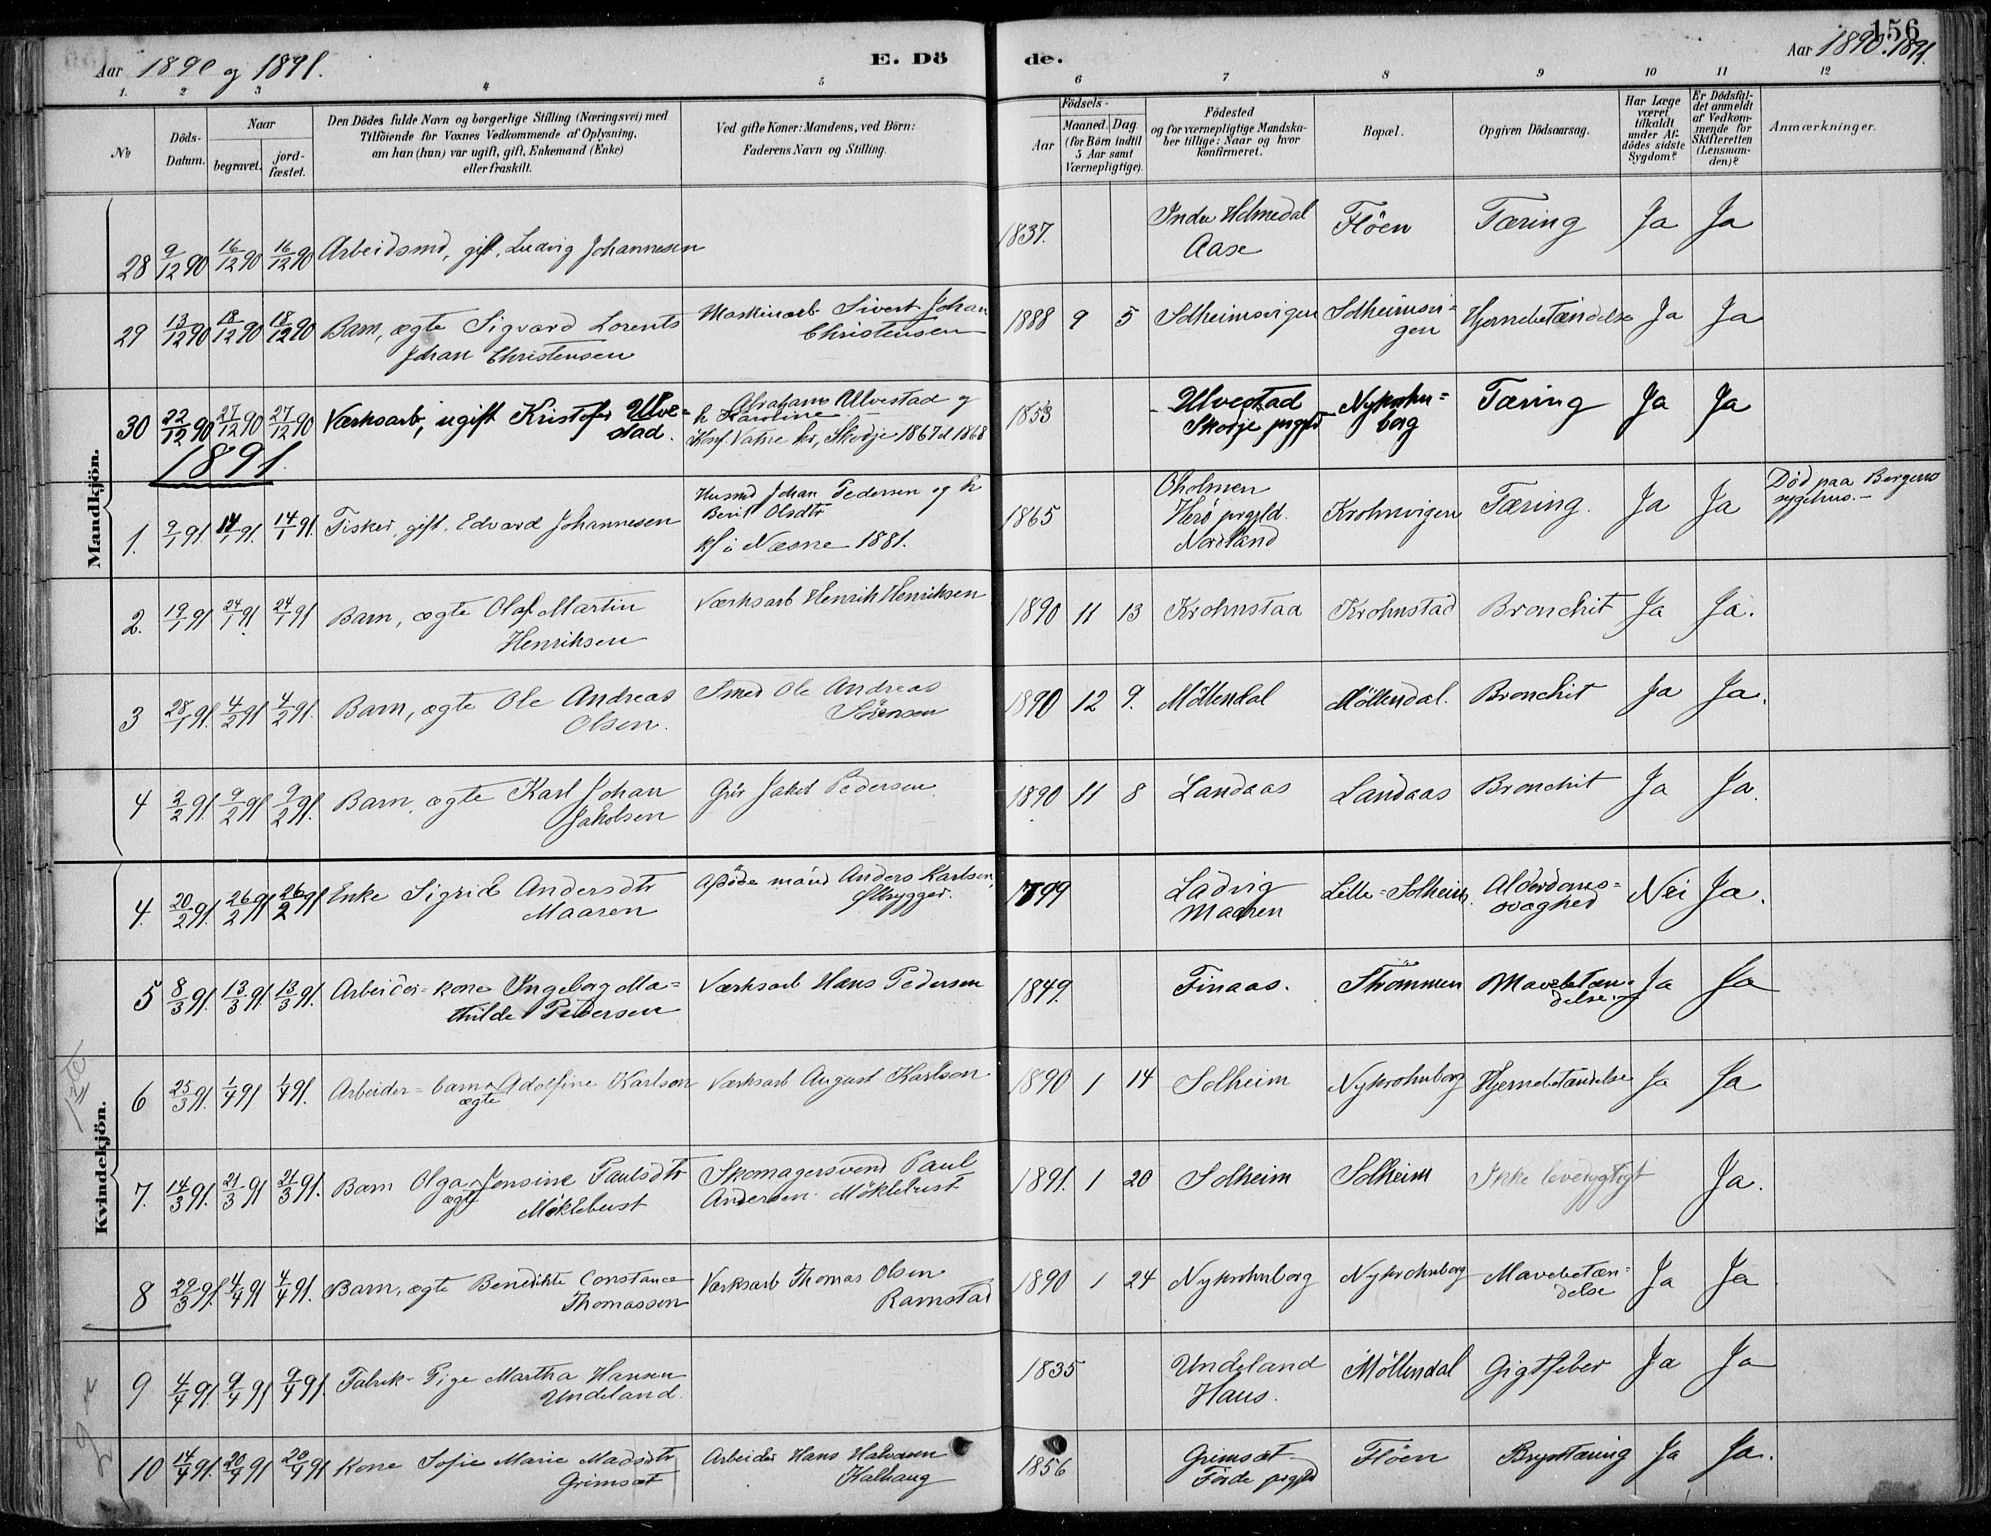 156
Aar 1890 og 1891. E. Dö de. Aar 1890. 1891.
1. 2 3 4 5 6 7 8 9 10 11 12
No
Döds-Datum.
Naar
begravet.
jord-fæstet.
Den Dödes fulde Navn og borgerlige Stilling (Næringsvei) med
Tilföiende for Voxnes Vedkommende af Oplysning,
om han (hun) var ugift, gift, Enkemand (Enke)
eller fraskilt.
Ved gifte Koner: Mandens, ved Börn:
Faderens Navn og Stilling.
Födsels-
Aar
Maaned. Dag
(for Börn indtil
5 Aar samt
Værnepligtige).
Födested
og for værnepligtige Mandska-
ber tillige: Naar og hvor
konfirmeret.
Bopæl.
Opgiven Dödsaarsag.
Har Læge
været
tilkaldt
under Af-
dödes sidste
Sygdom?
Er Dödsfal-
det anmeldt
af Vedkom-
mende for
Skifteretten
(Lensman-
den)?
Anmærkninger.
Mandkjön.
28 9/12 90 16/12 90 16/12 90 Arbeidsmd, gift, Ludvig Johannesen 1837. Indre Holmedal Aase Flöen Tæring Ja Ja
29 13/12 90 18/12 90 18/12 90 Barn, ægte Sigvard Lorents Johan Christensen Maskinarb Sivert Johan Christensen 1888 9 5 Solheimsvigen Solheimsvigen Hjernebetændelse Ja Ja
30 22/12 90 27/12 90 27/12 90 Værksarb, ugift Kristofer Ulve=stad. Abraham Ulvestad og h Karoline Konf. Vatne kr, Skodje 1867 el 1868 1853 Ulvestad Skodje prgjld Nykrohn=borg Tæring Ja Ja
1891.
1. 9/1 91. 14/1 91. 14/1 91. Fisker, gift. Edvard Johannesen Husmd Johan Pedersen og h Berit Olsdtr kf i Næsne 1881. 1865 Oholmen Herö prgjld. Nordland Krohnvigen Tæring. Ja Ja Död paa Bergens sygehus.-
2. 19/1 91 24/1 91 24/1 91 Barn, ægte Olaf Martin Henriksen Værksarb Henrik Henriksen 1890 11 13 Krohnstad Krohnstad Bronchit Ja Ja.
3 28/1 91. 4/2 91 4/2 91. Barn, ægte Ole Andreas Olsen. Smed Ole Andreas Sörensen 1890 12 9. Möllendal Möllendal. Bronchit Ja Ja.
4 2/2 91. 9/2 91 9/2 91. Barn, ægte Karl Johan Jakobsen Jakob Pedersen 1890 11 8 Landaas Landaas Bronchit Ja Ja.
Kvindekjön.
4. 20/2 91. 26/2 91 26/2 91 Enke Sigrid Andersdtr Maaren Afdöde mand Anders Karlsen, Ølbrygger. 1799 Ladvig Maaren Lille=Solheim. Alderdoms=svaghed Nei Ja.
5 8/3 91. 13/3 91 13/3 91. Arbeider=kone Ingeborg Ma=thilde Pedersen Værksarb Hans Pedersen 1849. Finaas. Strömmen Mavebetæn=delse. Ja Ja
6 25/3 91. 1/4 91 1/4 91. Arbeider=barn ægte Adolfine Karlson Værksarb August Karlson 1890 1 14 Solheim Nykrohnborg Hjernebetændelse Ja Ja
7. 14/3 91. 21/3 91 21/3 91. Barn ægte Olga Jensine Paulsdtr Möklebust Skomagersvend Paul Andersen Möklebust 1891. 1 20 Solheim Solheim Ikke levedygtigt Ja.
8 29/3 91. 4/4 91 4/4 91. Barn, ægte Benedikte Constance Thomassen Værksarb Thomas Olsen Ramstad 1890 1 24 Nykrohnborg Nykrohnborg Mavebetæn=delse Ja Ja
9 4/4 91. 9/4 91 9/4 91. Fabrik-Pige Martha Hansen Undeland. 1835 Undeland Haus. Möllendal Gigtfeber Ja Ja
10 14/4 91. 20/4 91 20/4 91 Kone Sofie Marie Madsdtr Grimsæt Arbeider Hans Halvorsen Kalhaug 1856 Grimsæt Förde prgjld Flöen Brysttæring Ja Ja.